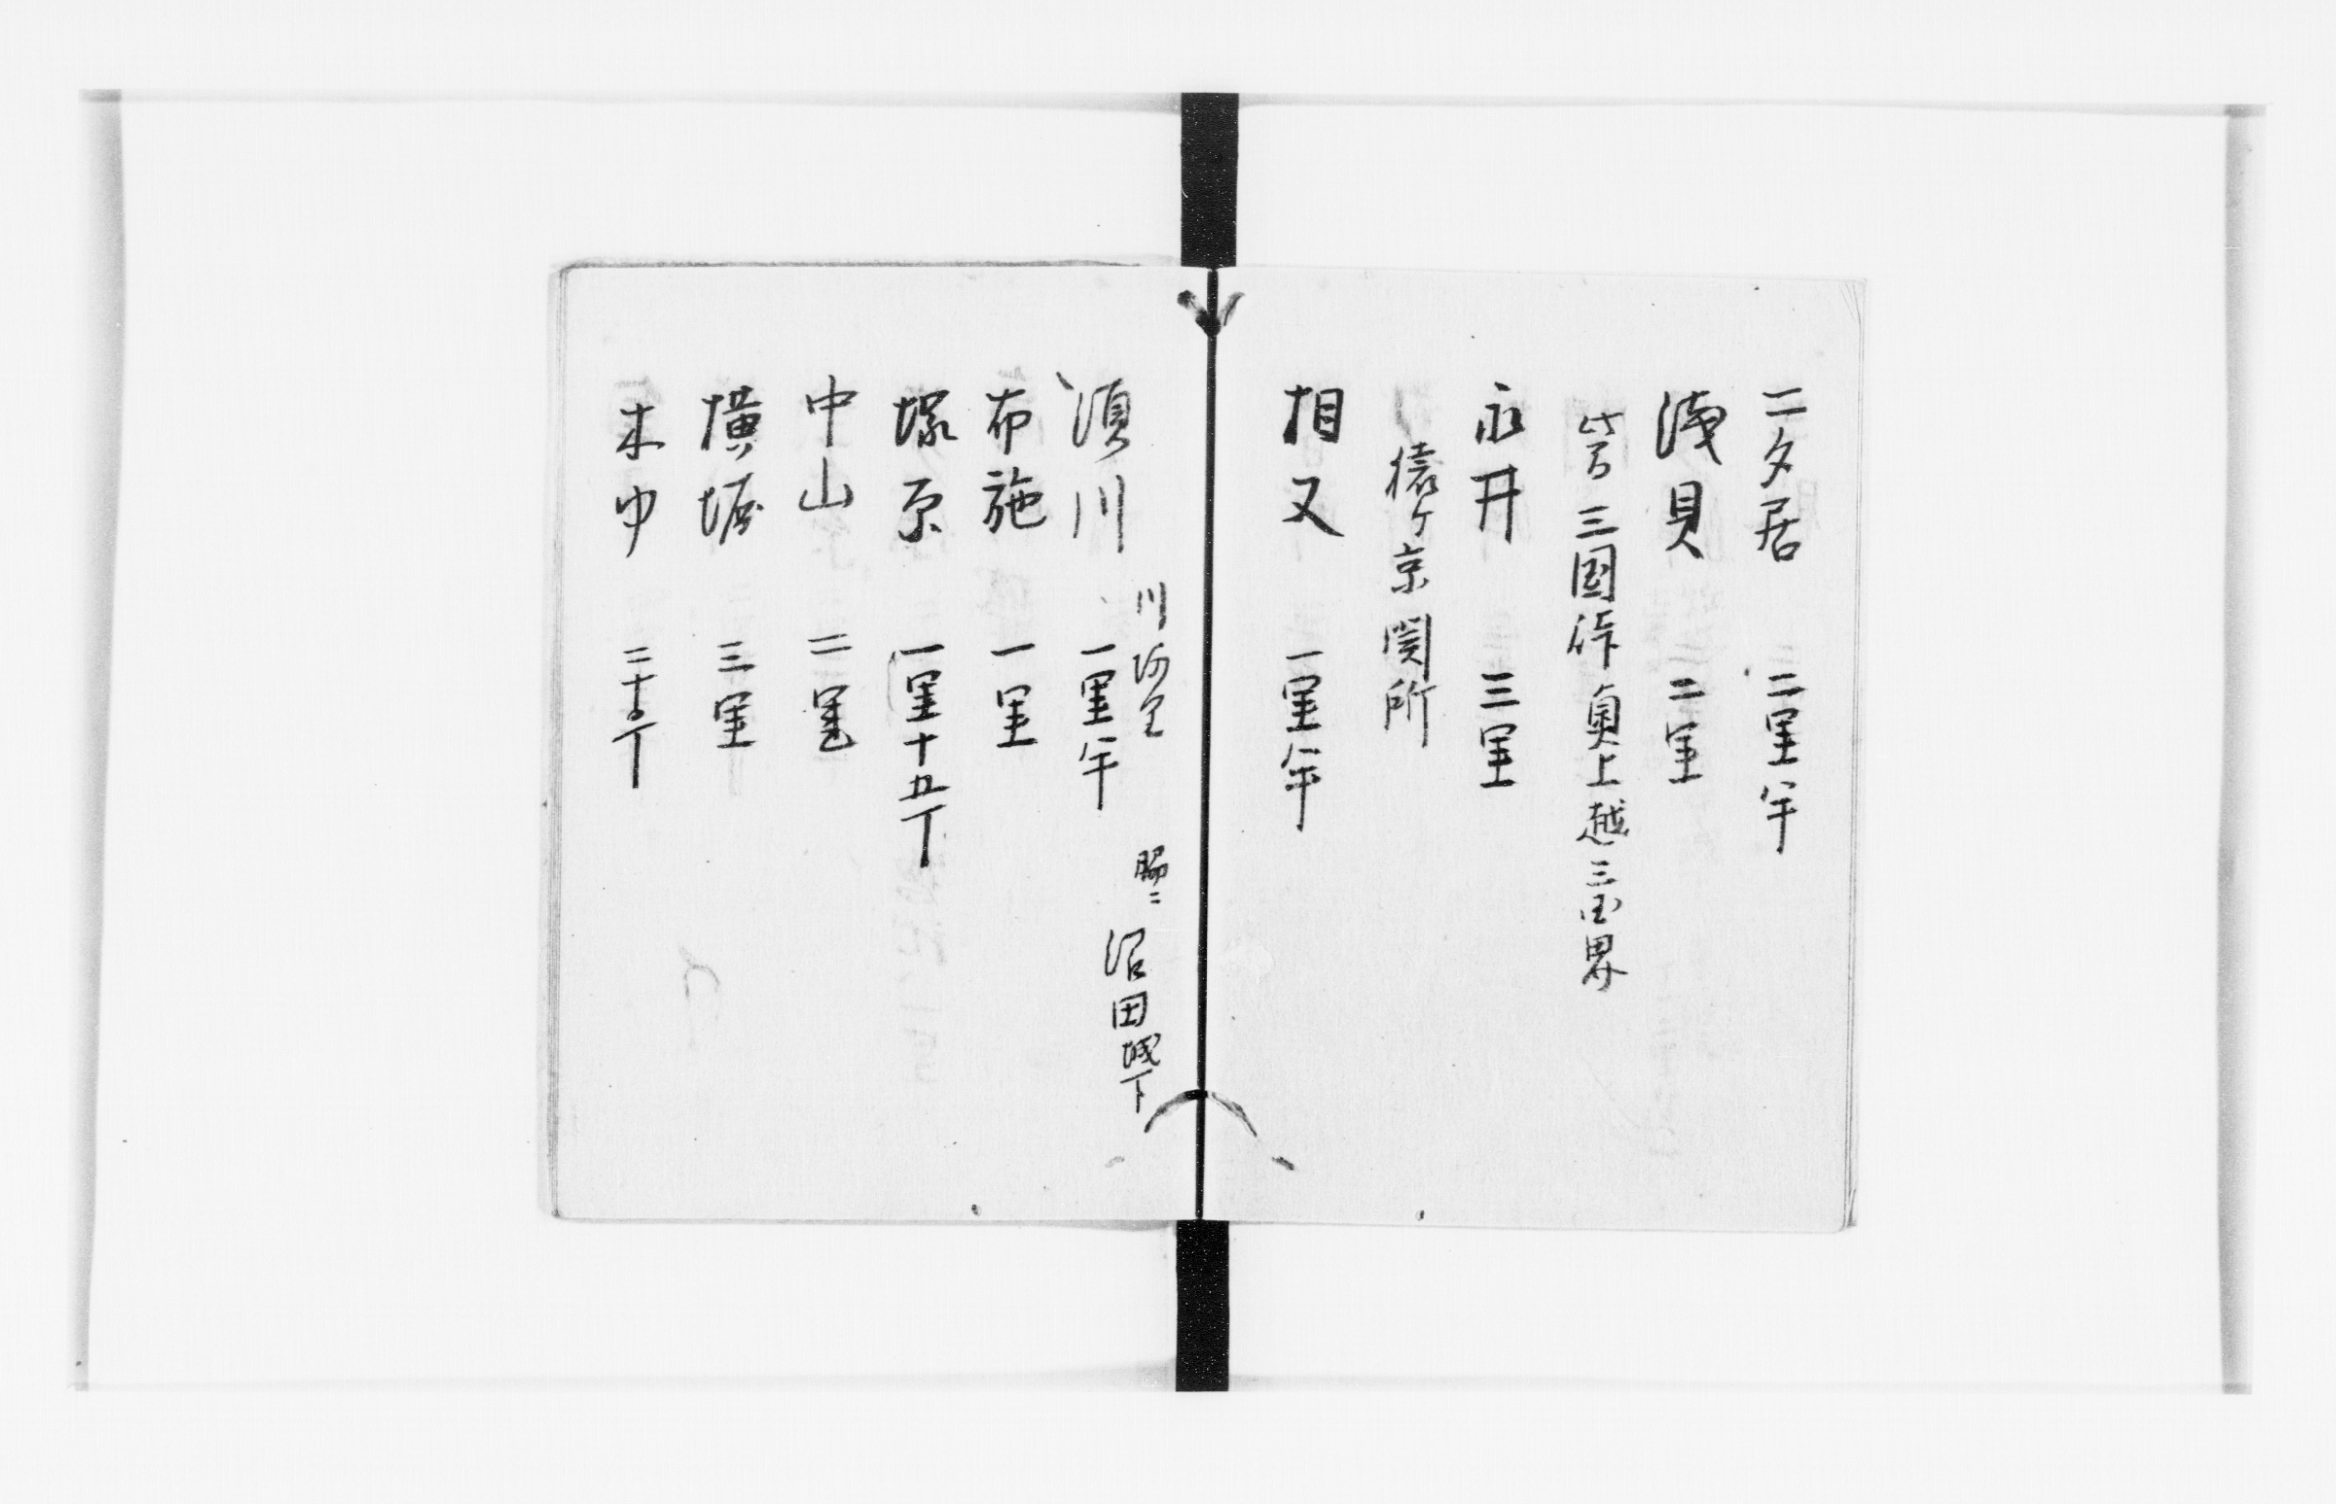 二夕居 二里半
浅貝 二里
此間三國峠 奥上越三国界
永井 三里
猿ヶ京関所
相又 一里半
脇ニ沼田城下
須川 一里半
布施 一里
塚原 一里十五丁
中山 二里
横堀 三里
木中 二十丁